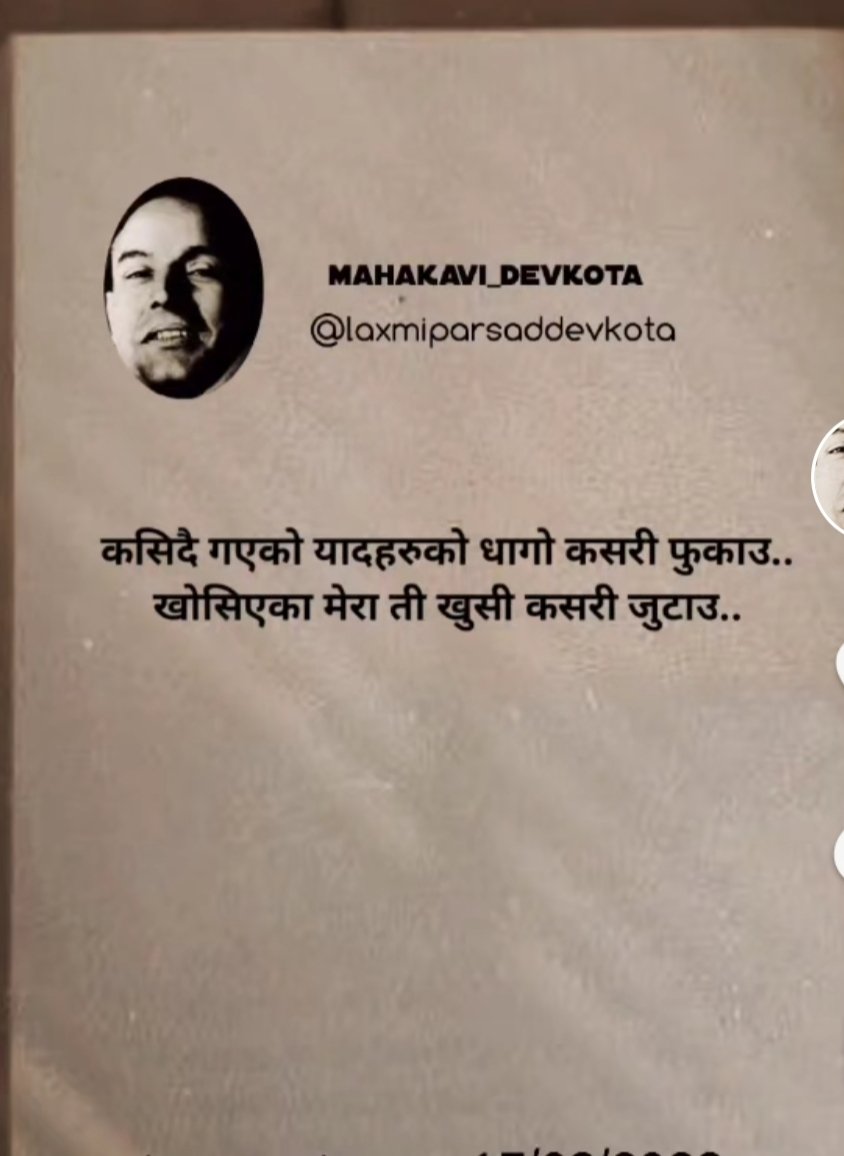 MAHAKAVI_DEVKOTA
@laxmiparsaddevkota
कसिदै गएको यादहरुको धागो कसरी फुकाउ..
खोसिएका मेरा ती खुसी कसरी जुटाउ..